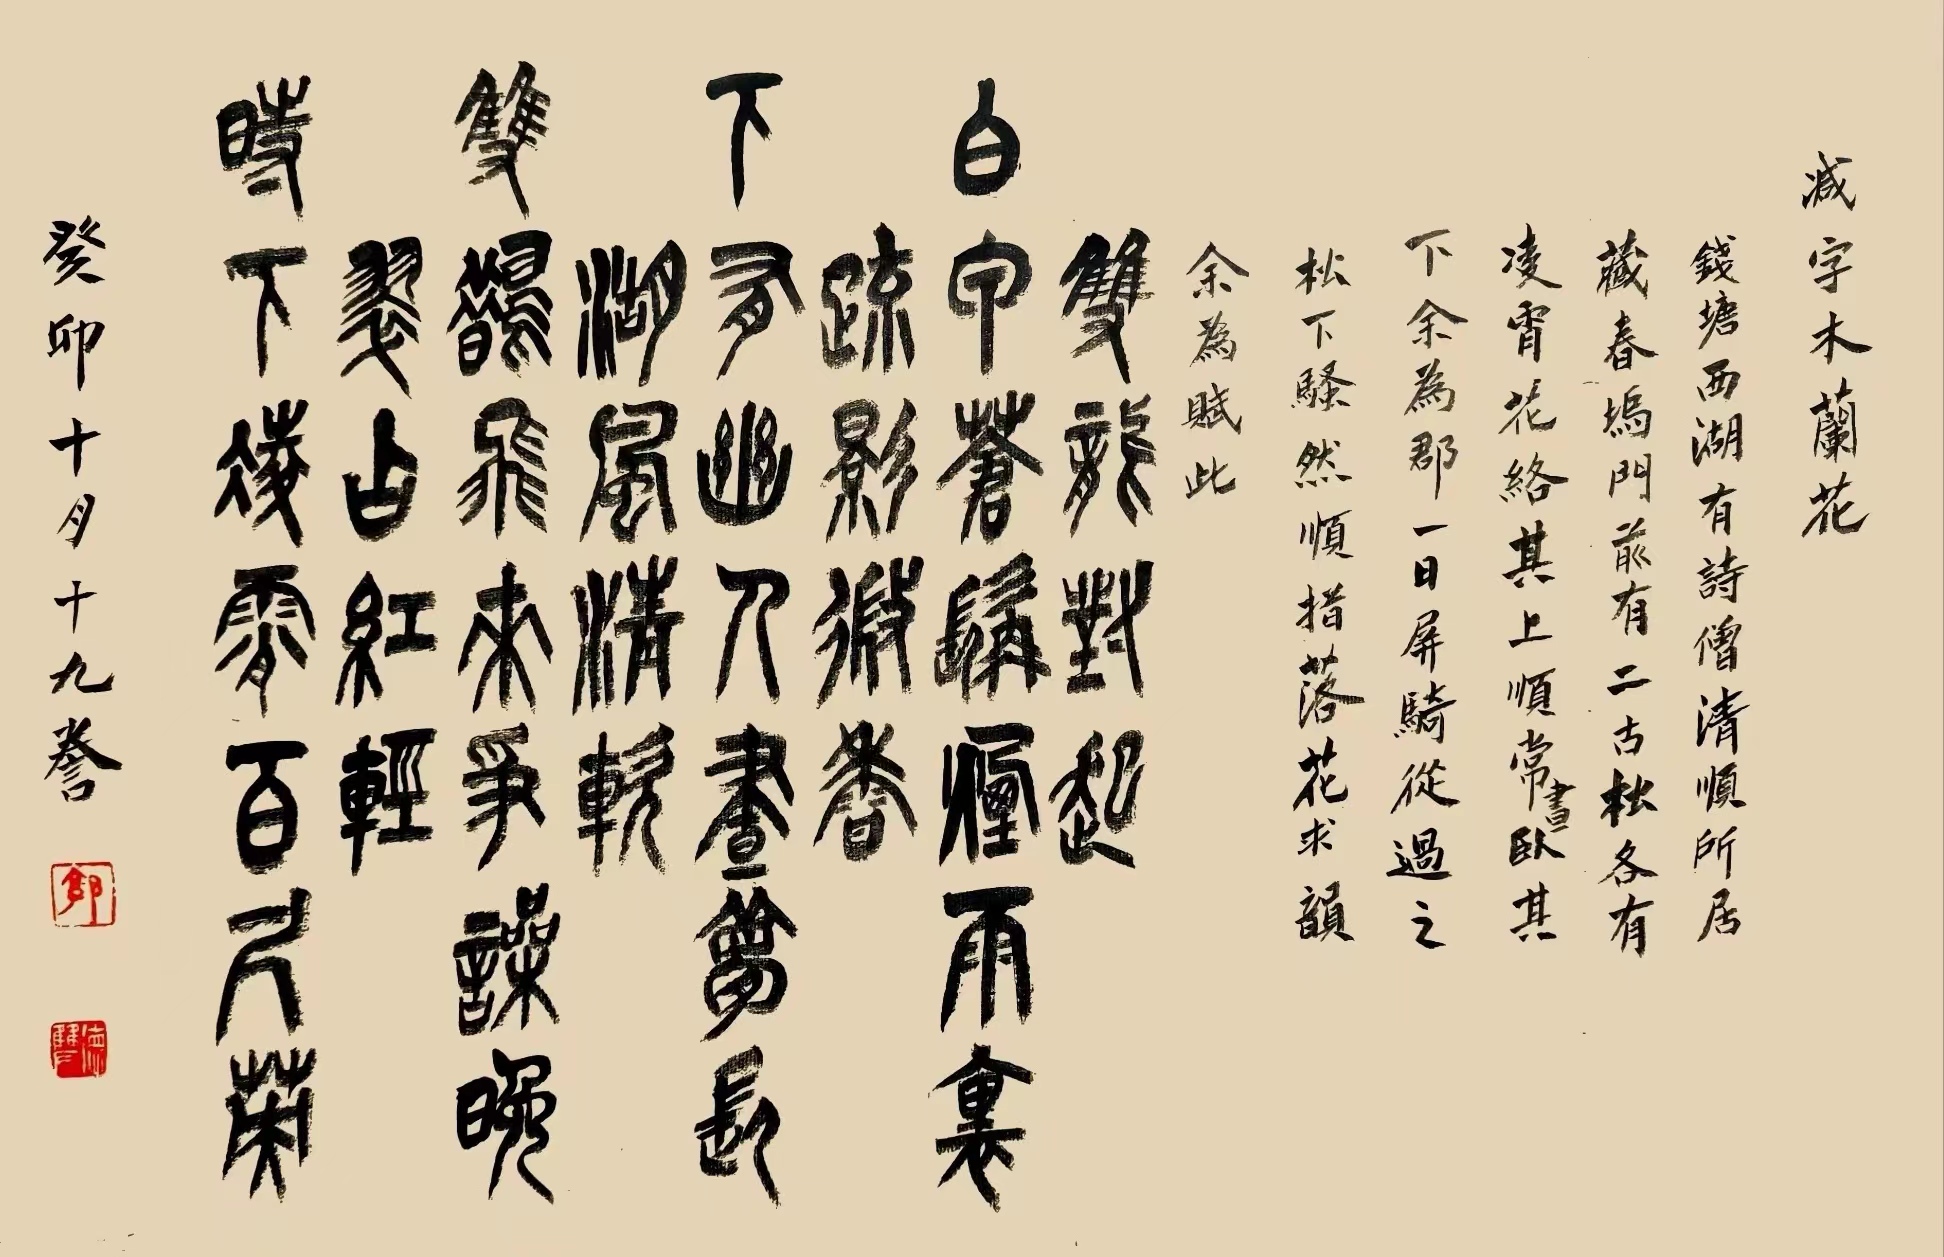 減字木蘭花
錢塘西湖有詩僧清順所居
藏春塢門前有二古松各有
凌霄花絡其上順常晝臥其
下余為郡一日屏騎從過之
松下騷然順指落花求韻
余為賦此
雙龍對起
白甲蒼髯煙雨裏
疏影微香
下有幽人晝夢長
湖風清軟
雙鵲飛來爭噪晚
翠占紅輕
時下凌霄百尺英
癸卯十月十九